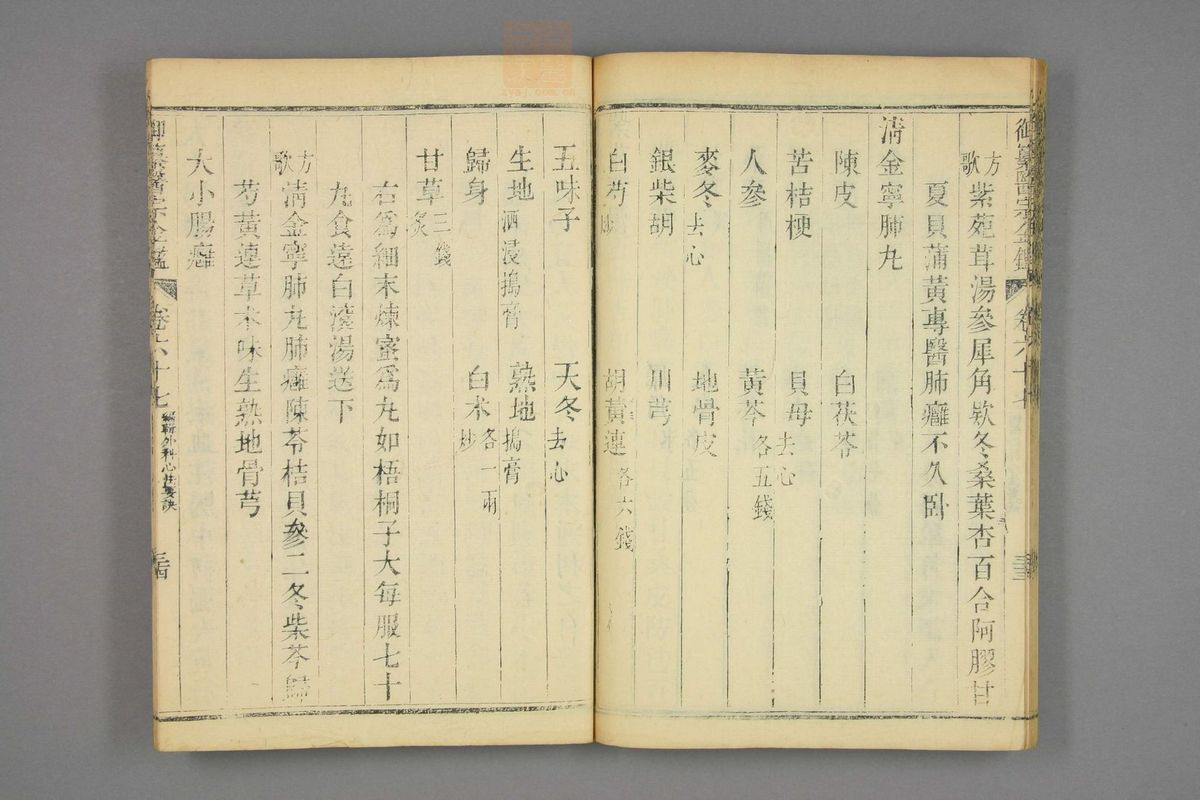 御纂醫宗金鑑 卷六十七 三三
方歌 紫菀茸湯參犀角欵冬桑葉杏百合阿膠甘
夏貝蒲黃專醫肺癰不久卧
清金寧肺丸
陳皮 白茯苓
苦桔梗 貝母去心
人參 黃芩各五錢
麥冬去心 地骨皮
銀柴胡 川芎
白芍炒 胡黃連各六錢
五味子 天冬去心
生地酒浸搗膏 熟地搗膏
歸身 白术炒各一兩
甘草炙三錢
右爲細末煉蜜爲丸如梧桐子大每服七十
丸食遠白滚湯送下
方歌 清金寧肺丸肺癰陳苓桔貝參二冬柴芩歸
芍黃連草术味生熟地骨芎
大小腸癰
御纂醫宗金鑑 卷六十七 編輯外科心法要訣 三四